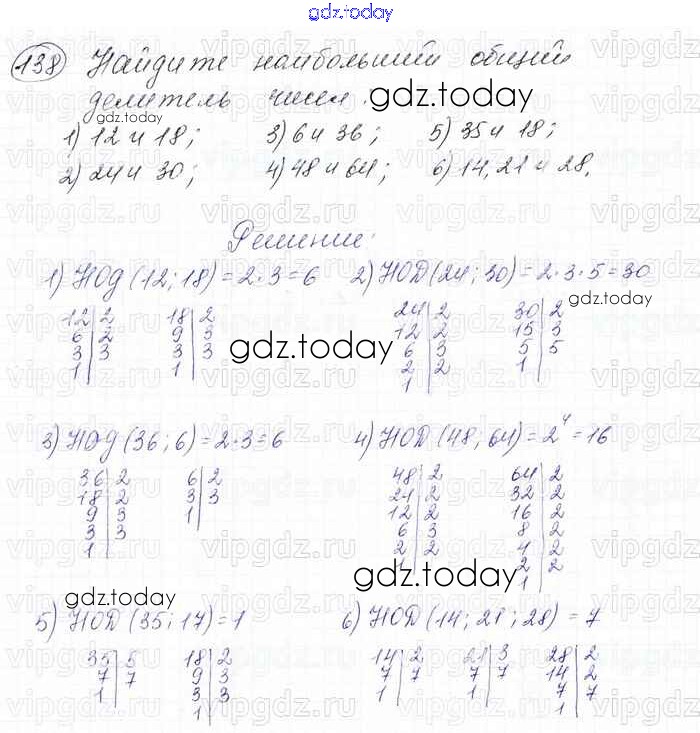 gdz.today
138 Найдите наибольший общий
делитель чисел.
gdz.today
gdz.today
1) 12 и 18; 3) 6 и 36; 5) 35 и 18;
2) 24 и 30; 4) 48 и 64; 6) 14, 21 и 28.
Решение:
1) НОД (12; 18) = 2·3 = 6 2) НОД (24; 30) = 2·3·5 = 30
gdz.today
12 | 2 18 | 2 24 | 2 30 | 2
6 | 2 9 | 3 12 | 2 15 | 3
3 | 3 3 | 3 6 | 3 5 | 5
1 | 1 | 2 | 2 1 |
1 |
gdz.today
3) НОД (36; 6) = 2·3 = 6 4) НОД (48; 64) = 2⁴ = 16
36 | 2 6 | 2 48 | 2 64 | 2
18 | 2 3 | 3 24 | 2 32 | 2
9 | 3 1 | 12 | 2 16 | 2
3 | 3 6 | 3 8 | 2
1 | 2 | 2 4 | 2
1 | 2 | 2
1 |
gdz.today
gdz.today
5) НОД (35; 17) = 1 6) НОД (14; 21; 28) = 7
35 | 5 18 | 2 14 | 2 21 | 3 28 | 2
7 | 7 9 | 3 7 | 7 7 | 7 14 | 2
1 | 3 | 3 1 | 1 | 7 | 7
1 | 1 |
vipgdz.ru